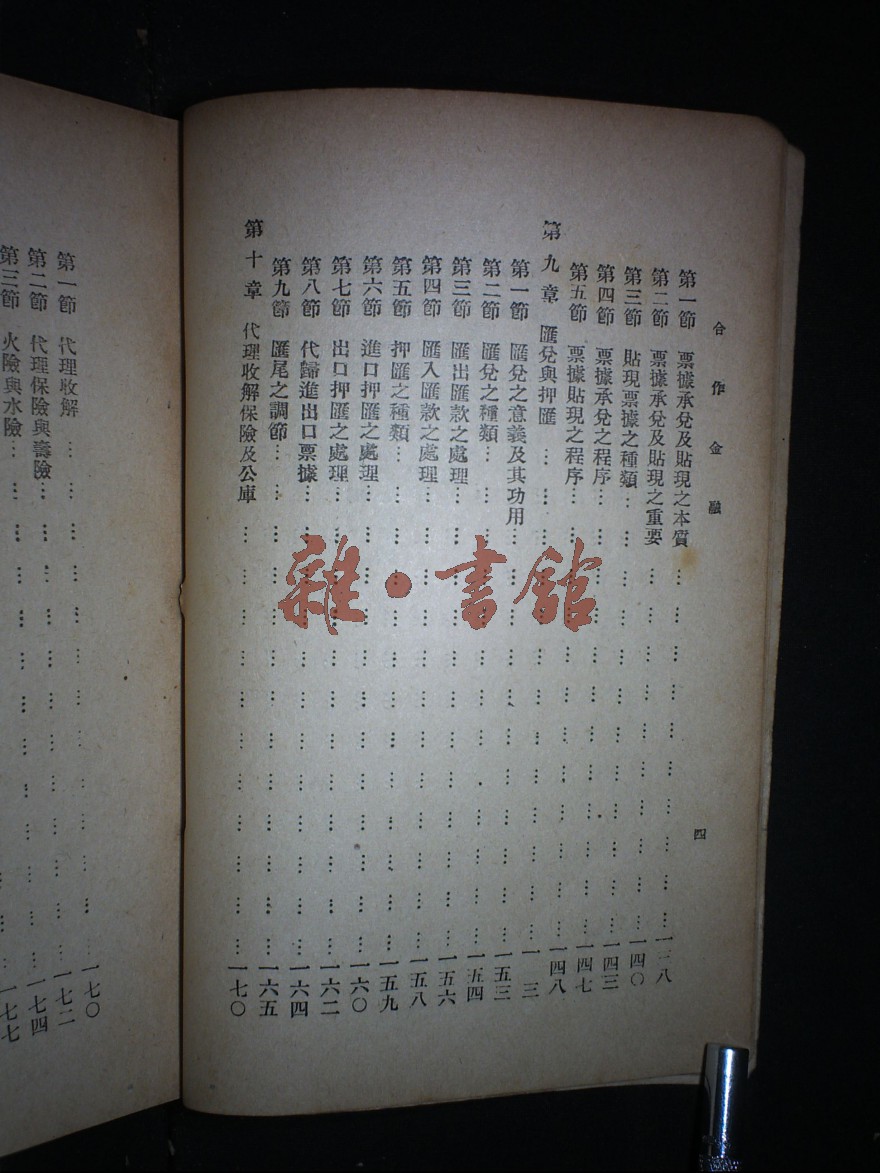 合作金融
四
第一節 票據承兌及貼現之本質……一三八
第二節 票據承兌及貼現之重要……一四〇
第三節 貼現票據之種類……一四三
第四節 票據承兌之程序……一四七
第五節 票據貼現之程序……一四八
第九章 匯兌與押匯……一 三
第一節 匯兌之意義及其功用……一五三
第二節 匯兌之種類……一五四
第三節 匯出匯款之處理……一五六
第四節 匯入匯款之處理……一五八
第五節 押匯之種類……一五九
第六節 進口押匯之處理……一六〇
第七節 出口押匯之處理……一六二
第八節 代歸進出口票據……一六四
第九節 匯尾之調節……一六五
第十章 代理收解保險及公庫……一七〇
第一節 代理收解……一七〇
第二節 代理保險與壽險……一七二
第三節 火險與水險……一七四
一七七
雜·書館